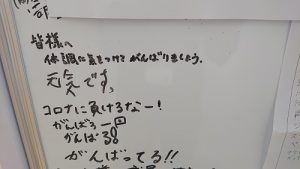 皆様へ
体調に気をつけてがんばりましょう。
元気です。
コロナに負けるなー!
がんばろー
がんばる
がんばってる!!